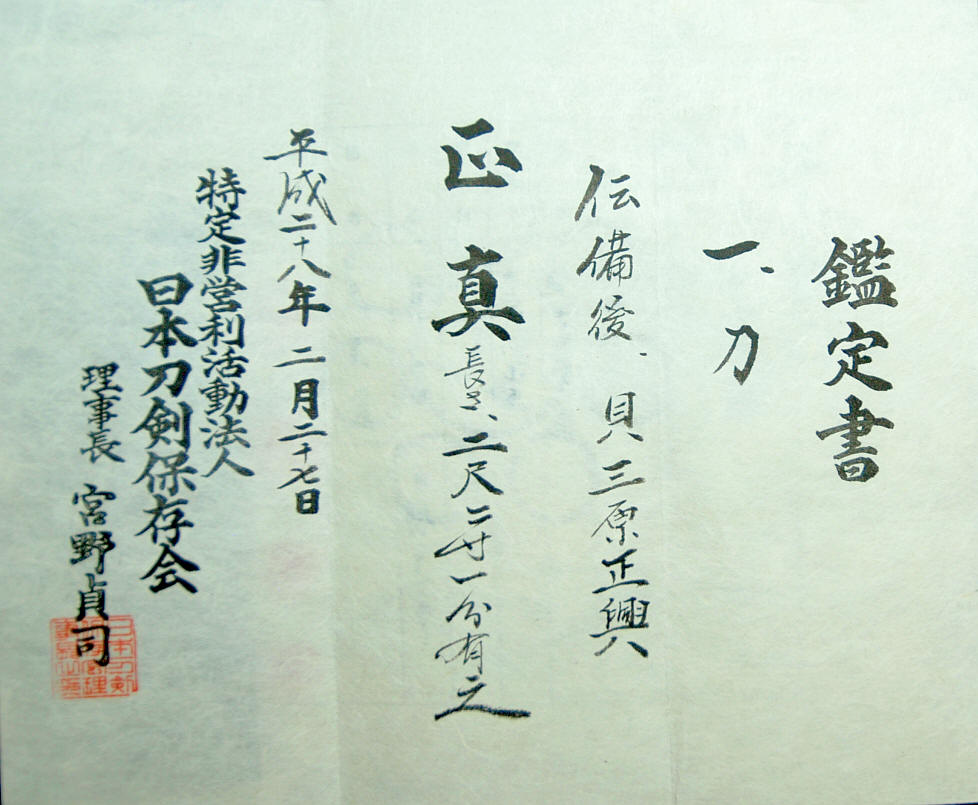 鑑定書
一、刀
伝備後、貝三原正興
正真 長さ、二尺二寸一分有之
平成二十八年 二月二十七日
特定非営利活動法人
日本刀剣保存会
理事長 宮野貞司